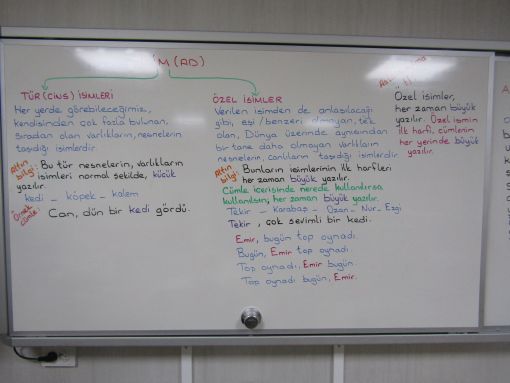 İSİM (AD)
TÜR (CİNS) İSİMLERİ
Her yerde görebileceğimiz,
kendisinden çok fazla bulunan,
sıradan olan varlıkların, nesnelerin
taşıdığı isimlerdir.
Altın bilgi: Bu tür nesnelerin, varlıkların
isimleri normal şekilde, küçük
yazılır.
kedi _ köpek _ kalem
Örnek Cümle: Can, dün bir kedi gördü.
ÖZEL İSİMLER
Verilen isimden de anlaşılacağı
gibi, eşi/benzeri olmayan, tek
olan, Dünya üzerinde aynısından
bir tane daha olmayan varlıkların
nesnelerin, canlıların taşıdığı isimlerdir.
Altın bilgi: Bunların isimlerinin ilk harfleri
her zaman büyük yazılır.
Cümle içerisinde nerede kullanılırsa
kullanılsın, her zaman büyük yazılır.
Tekir _ Karabaş _ Ozan _ Nur _ Ezgi
Tekir, çok sevimli bir kedi.
Emir, bugün top oynadı.
Bugün, Emir top oynadı.
Top oynadı, Emir bugün.
Top oynadı bugün, Emir.
Özel isimler,
her zaman büyük
yazılır. Özel ismin
ilk harfi, cümlenin
her yerinde büyük
yazılır.